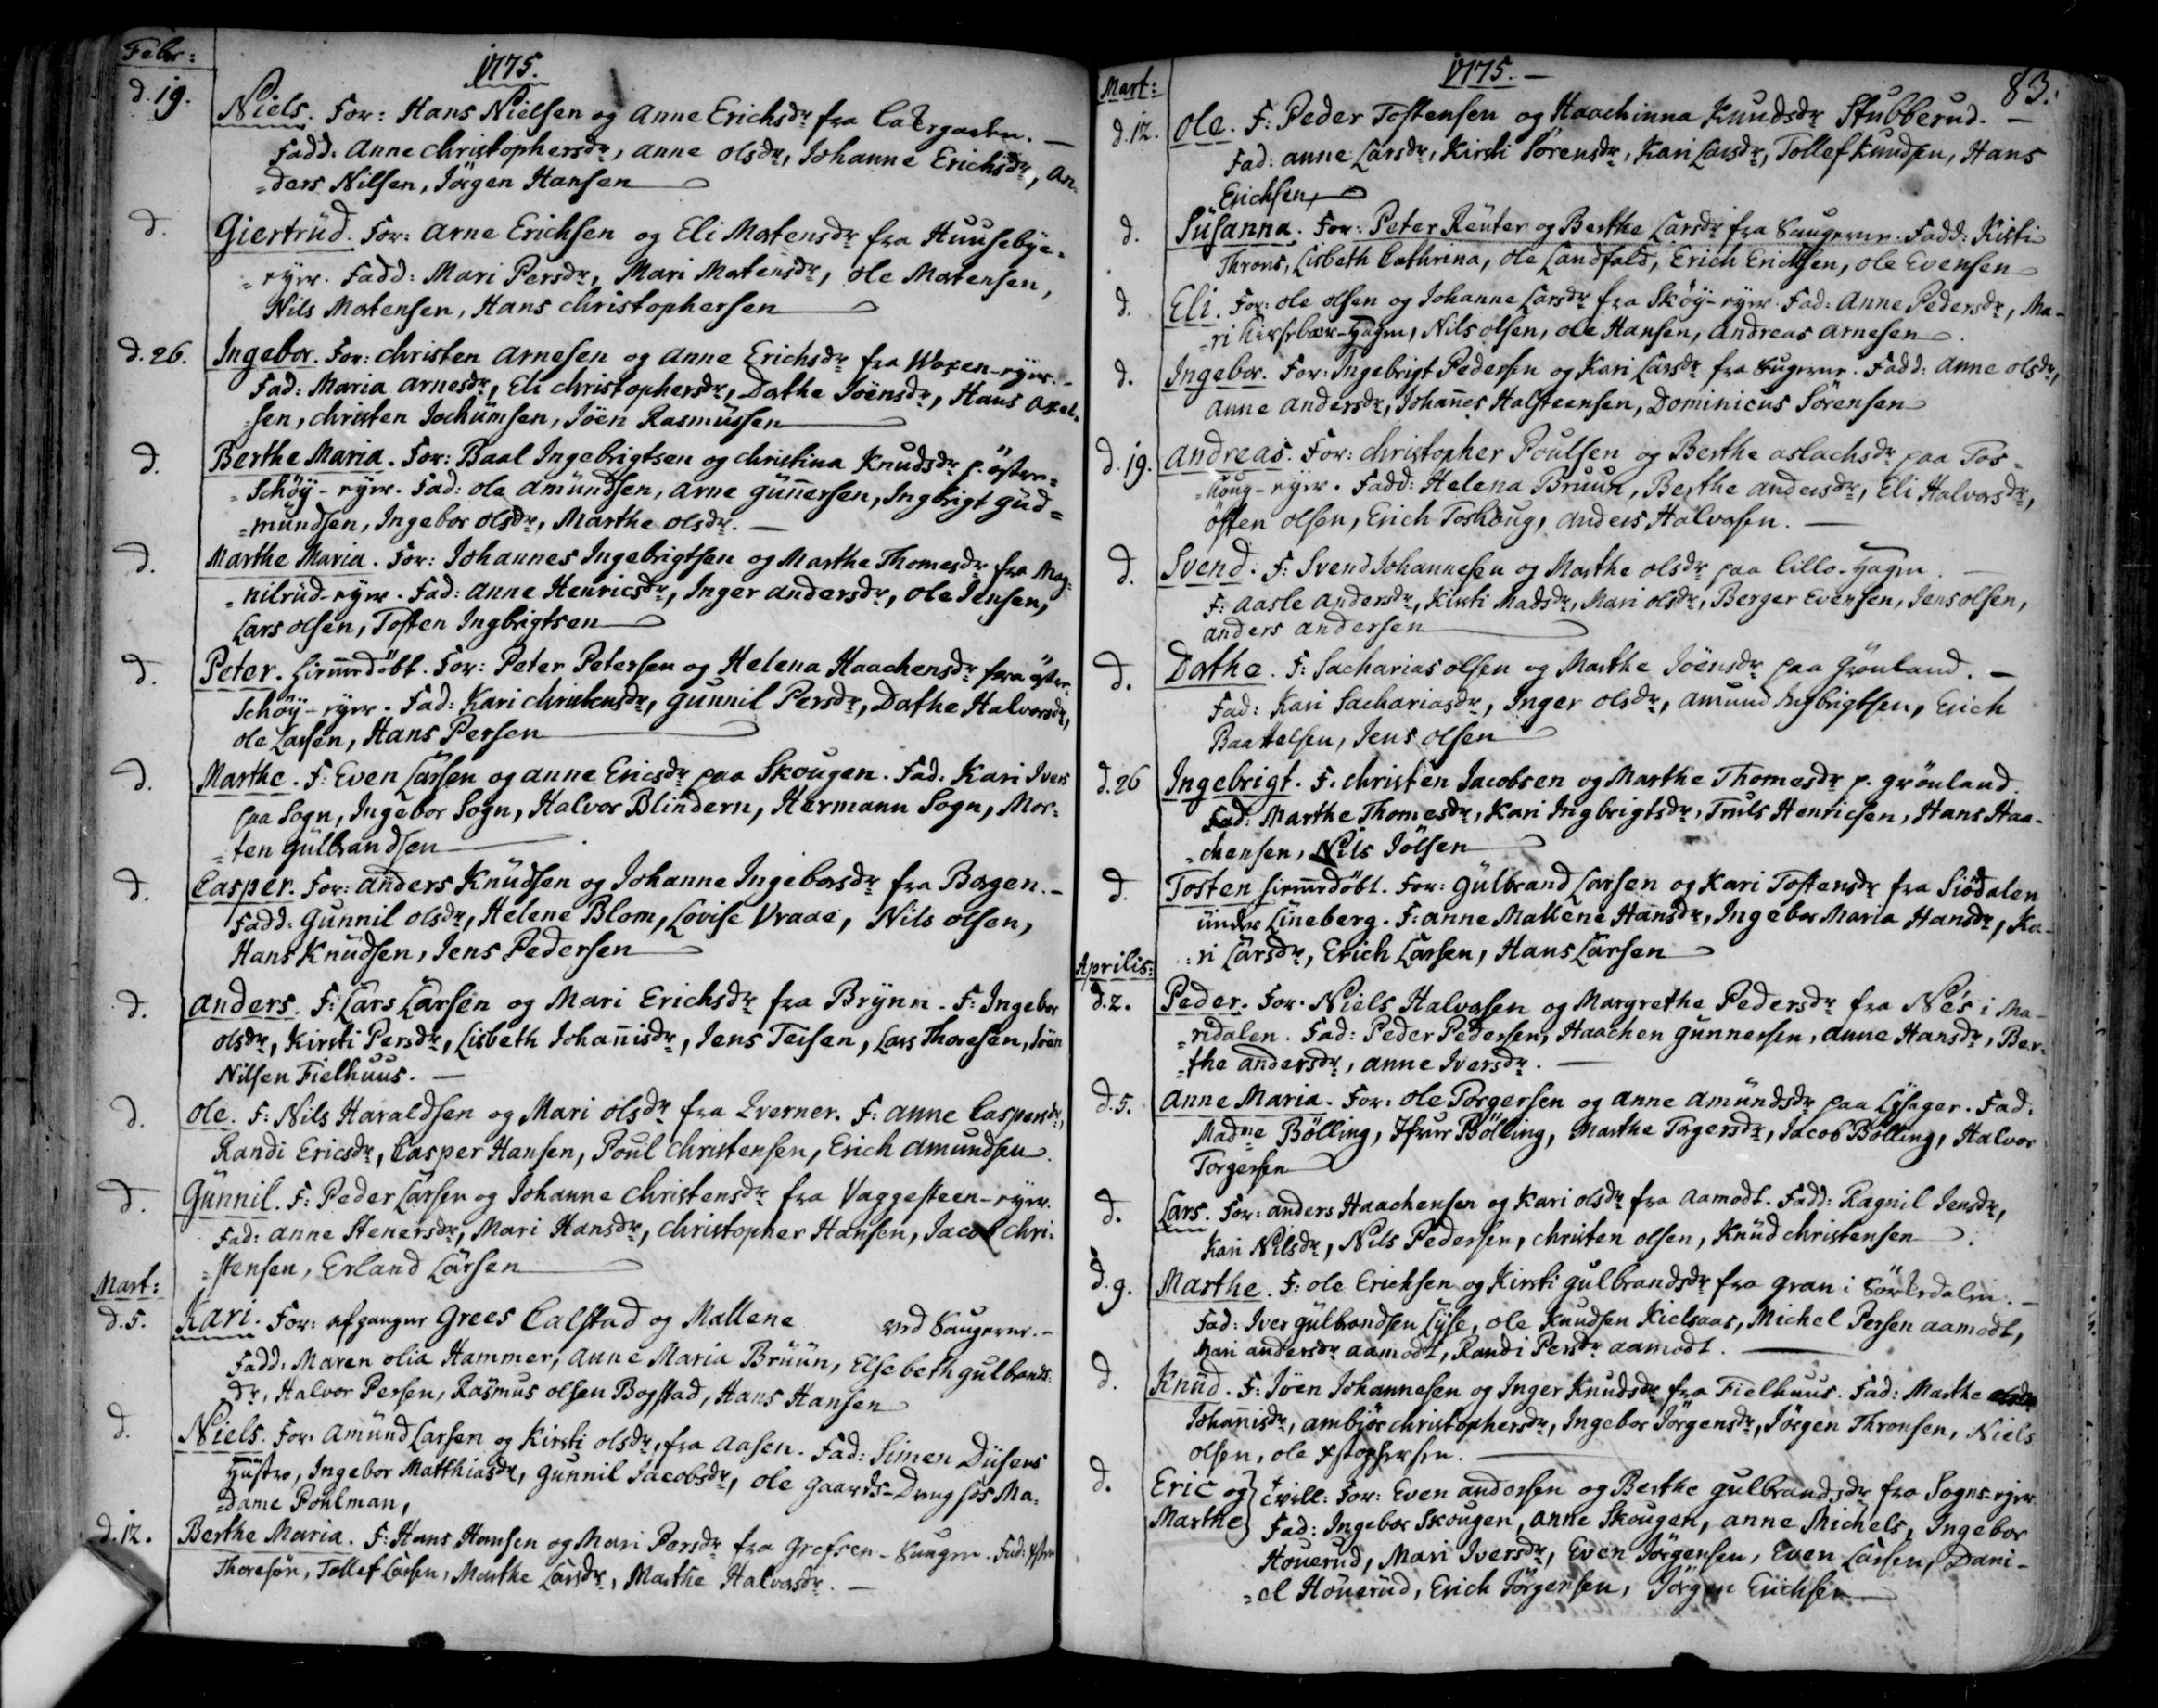 Febr:
1775.
d. 19. Niels. For: Hans Nielsen og Anne Erichsdr fra
Fadd: Anne Christophersdr, Anne Olsdr, Johanne Erichsdr, An-
=ders Nilsen, Jörgen Hansen
d. Giertrüd. For: Arne Erichsen og Eli Mortensdr fra Huusebye-
=eyer. Fadd: Mari Persdr, Mari Mortensdr, Ole Mortensen,
Nils Mortensen, Hans Christophersen
d. 26. Ingebor. For: Christen Arnesen og Anne Erichsdr fra Woxen-eyer.
Fad: Maria Arnesdr, Eli Christophersdr, Dorthe Jöensdr, Hans Axel-
=sen, Christen Jochümsen, Jöen Rasmüssen
d. Berthe Maria. For: Baal Ingebrigtsen og Christina Knudsdr p. öster-
=Schöÿ-eyer. Fad: Ole Amündsen, Arne Gün̄ersen, Ingbrigt Güd=
=mündsen, Ingebor Olsdr, Marthe Olsdr.
d. Marthe Maria. For: Johannes Ingebrigtsen og Marthe Thomesdr fra Mag-
=nilrüd-eyer. Fad: Anne Henricsdr, Inger Andersdr, Ole Jensen,
Lars Olsen, Tosten Ingbrigtsen
d. Peter. Hiemedöbt. For: Peter Petersen og Helena Haachensdr fra öster-
Schöÿ-eyer. Fad: Kari Christensdr, Gunnil Persdr, Dorthe Halvorsdr,
Ole Larsen, Hans Persen
d. Marthe. F: Even Larsen og Anne Ericsdr paa Skougen. Fad: Kari Ivers
paa Sogn, Ingebor Sogn, Halvor Blindern, Hermann Sogn, Mor-
=ten Gülbrandsen
d. Casper. For: Anders Knüdsen og Johanne Ingeborsdr fra Borgen.
Fadd: Gunnil Olsdr, Helene Blom, Lovise Vraae, Nils Olsen,
Hans Knüdsen, Jens Pedersen
d. Anders. F: Lars Larsen og Mari Erichsdr fra Brÿnn. F: Ingebor
Olsdr, Kirsti Persdr, Lisbeth Johan̄isdr, Jens Teisen, Lars Thoresen, Jöen
Nilsen Fielhuus.
d. Ole. F: Nils Haraldsen og Mari Olsdr fra Qverner. F: Anne Caspersdr,
Randi Ericsdr, Casper Hansen, Poul Christensen, Erich Amundsen.
d. Günnil. F: Peder Larsen og Johanne Christensdr fra Vaggesteen-eyer.
Fad: Anne Stenersdr, Mari Hansdr, Christopher Hansen, Jacob Chri-
=stensen, Erland Larsen
Mart:
d. 5. Kari. For: afgangne Grees Calstad og Mallene ved Saugerne.
Fadd: Maren Olia Hammer, Anne Maria Brüün, Elsebeth Gulbrands-
dr, Halvor Persen, Rasmus Olsen Bogstad, Hans Hansen
d. Niels. For: Amünd Larsen og Kirsti Olsdr, fra Aasen. Fad: Simen Diisens
Hüstro, Ingebor Matthiasdr, Gunnil Jacobsdr, Ole Gaards-Dreng hos Ma-
=dame Pohlman,
d. 12. Berthe Maria. F: Hans Hansen og Mari Persdr fra Grefsen-Saugen. Fad:
Thoresön, Tollef Larsen, Marthe Larsdr, Marthe Halvorsdr.
1775.
83.
Mart:
d. 12. Ole. F: Peder Tostensen og Haachinna Knudsdr Stubberud.
Fad: Anne Larsdr, Kirsti Sörensdr, Kari Larsdr, Tollef Knudsen, Hans
Erichsen,
d. Süsanna. For: Peter Reuter og Berthe Larsdr fra Saugerne. Fadd: Kisti
Throns, Lisbeth Cathrina, Ole Landfald, Erich Erichsen, Ole Evensen
d. Eli. For: Ole Olsen og Johanne Larsdr fra Sköÿ-eyer. Fad: Anne Pedersdr, Ma-
=ri Kirsebær-Hagen, Nils Olsen, Ole Hansen, Andreas Arnesen
d. Ingebor. For: Ingebrigt Pedersen og Kari Larsdr fra Saugerne. Fadd: Anne Olsdr,
Anne Andersdr, Johan̄es Halsteensen, Dominicus Sörensen
d. 19. Andreas. For: Christopher Poulsen og Berthe Aslachsdr paa Tos-
=houg-eyer. Fadd: Helena Bruun, Berthe Andersdr, Eli Halvorsdr,
östen Olsen, Erich Toshoug, Anders Halvorsen.
d. Svend. F: Svend Johannesen og Marthe Olsdr paa Lille-Hagen.
F: Aasle Andersdr, Kirsti Madsdr, Mari Olsdr, Berger Evensen, Jens Olsen,
Anders Andersen
d. Dorthe. F: Sacharias Olsen og Marthe Jöensdr paa Grönland.
Fad: Kari Sachariasdr, Inger Olsdr, Amund Ingbrigtsen, Erich
Baattelsen, Jens Olsen
d. 26 Ingebrigt. F: Christen Jacobsen og Marthe Thomesdr p. Grönland.
Fad: Marthe Thomesdr, Kari Ingbrigtsdr, Truls Henricsen, Hans Haa-
=chensen, Nils Jölsen
d. Tosten hiemedöbt. For: Gülbrand Larsen og Kari Tostensdr fra Siödalen
ünder Lineberg. F: Anne Mallene Hansdr, Ingebor Maria Hansdr, Ka-
=ri Larsdr, Erich Larsen, Hans Larsen
Aprilis:
d. 2. Peder. For: Niels Halvorsen og Margrethe Pedersdr fra Nes i Ma-
=ridalen. Fad: Peder Pedersen, Haachen Gunnersen, Anne Hansdr, Ber-
=the Andersdr, Anne Iversdr.
d. 5. Anne Maria. For: Ole Torgersen og Anne Amündsdr paa Lÿsager. Fad:
Madme Bölling, Jfrue Bölling, Marthe Torgersdr, Jacob Bölling, Halvor
Torgersen
d. Lars. For: Anders Haachensen og Kari Olsdr fra Aamodt. Fadd: Ragnil Jensdr,
Kari Nilsdr, Nils Pedersen, Christen Olsen, Knüd Christensen
d. 9. Marthe. F: Ole Erichsen og Kirsti Gulbrandsdr fra Gran i Sörkedalen.
Fad: Iver Gülbrandsen Lÿse, Ole Knudsen Kielsaas, Michel Persen Aamodt,
Mari Andersdr Aamodt, Randi Persdr Aamodt.
d. Knüd. F: Jöen Johannesen og Inger Knudsdr fra Fielhuus. Fad: Marthe
Johan̄isdr, Ambjör Christophersdr, Ingebor Jörgensdr, Jörgen Thronsen, Niels
Olsen, Ole Xstophersen.
d. Eric og Tvill: For: Even Andersen og Berthe Gulbrandsdr fra Sogns-eyer
Marthe Fad: Ingebor Skougen, Anne Skougen, Anne Michels, Ingebor
Houerud, Mari Iversdr, Even Jörgensen, Even Larsen, Dani-
=el Houerud, Erich Jörgensen, Jörgen Erichsen